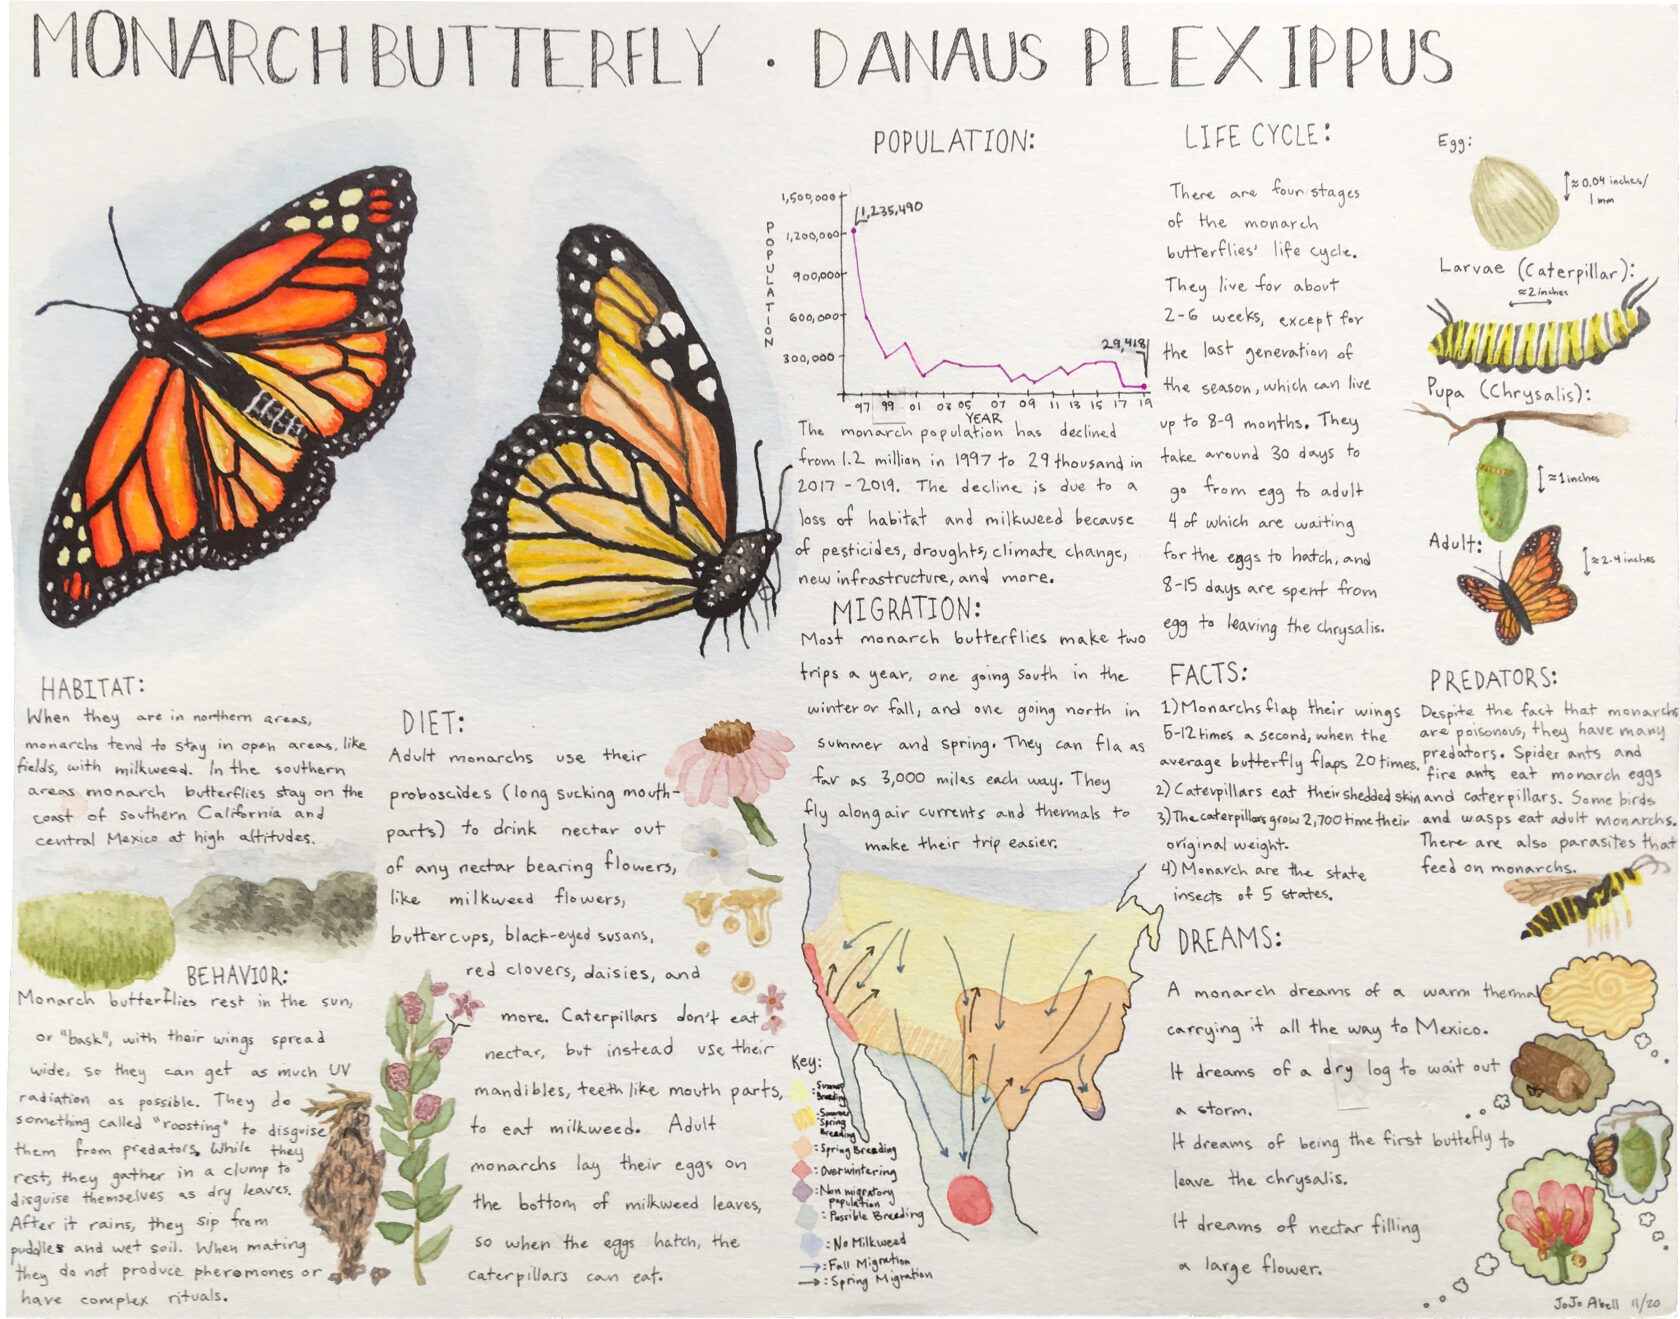 MONARCH BUTTERFLY · DANAUS PLEXIPPUS
POPULATION:
1,500,000
1,200,000
900,000
600,000
300,000
POPULATION
1,235,490
29,418
97 99 01 03 05 07 09 11 13 15 17 19
YEAR
The monarch population has declined
from 1.2 million in 1997 to 29 thousand in
2017-2019. The decline is due to a
loss of habitat and milkweed because
of pesticides, droughts, climate change,
new infrastructure, and more.
MIGRATION:
Most monarch butterflies make two
trips a year, one going south in the
winter or fall, and one going north in
summer and spring. They can fla as
far as 3,000 miles each way. They
fly along air currents and thermals to
make their trip easier.
Key:
: Summer
Breeding
: Summer
Spring
Breeding
: Spring Breeding
: Overwintering
: Non migratory
population
: Possible Breeding
: No Milkweed
: Fall Migration
: Spring Migration
LIFE CYCLE:
There are four stages
of the monarch
butterflies' life cycle.
They live for about
2-6 weeks, except for
the last generation of
the season, which can live
up to 8-9 months. They
take around 30 days to
go from egg to adult
4 of which are waiting
for the eggs to hatch, and
8-15 days are spent from
egg to leaving the chrysalis.
Egg:
≈0.04 inches/
1 mm
Larvae (Caterpillar):
≈2 inches
Pupa (Chrysalis):
≈1 inches
Adult:
≈2.4 inches
HABITAT:
When they are in northern areas,
monarchs tend to stay in open areas, like
fields, with milkweed. In the southern
areas monarch butterflies stay on the
coast of southern California and
central Mexico at high altitudes.
BEHAVIOR:
Monarch butterflies rest in the sun,
or "bask", with their wings spread
wide, so they can get as much UV
radiation as possible. They do
something called "roosting" to disguise
them from predators. While they
rest, they gather in a clump to
disguise themselves as dry leaves.
After it rains, they sip from
puddles and wet soil. When mating
they do not produce pheromones or
have complex rituals.
DIET:
Adult monarchs use their
proboscides (long sucking mouth-
parts) to drink nectar out
of any nectar bearing flowers,
like milkweed flowers,
buttercups, black-eyed susans,
red clovers, daisies, and
more. Caterpillars don't eat
nectar, but instead use their
mandibles, teeth like mouth parts,
to eat milkweed. Adult
monarchs lay their eggs on
the bottom of milkweed leaves,
so when the eggs hatch, the
caterpillars can eat.
FACTS:
1) Monarchs flap their wings
5-12 times a second, when the
average butterfly flaps 20 times.
2) Caterpillars eat their shedded skin
3) The caterpillars grow 2,700 time their
original weight.
4) Monarch are the state
insects of 5 states.
PREDATORS:
Despite the fact that monarchs
are poisonous, they have many
predators. Spider ants and
fire ants eat monarch eggs
and caterpillars. Some birds
and wasps eat adult monarchs.
There are also parasites that
feed on monarchs.
DREAMS:
A monarch dreams of a warm thermal
carrying it all the way to Mexico.
It dreams of a dry log to wait out
a storm.
It dreams of being the first buttefly to
leave the chrysalis.
It dreams of nectar filling
a large flower.
JoJo Abell 11/20